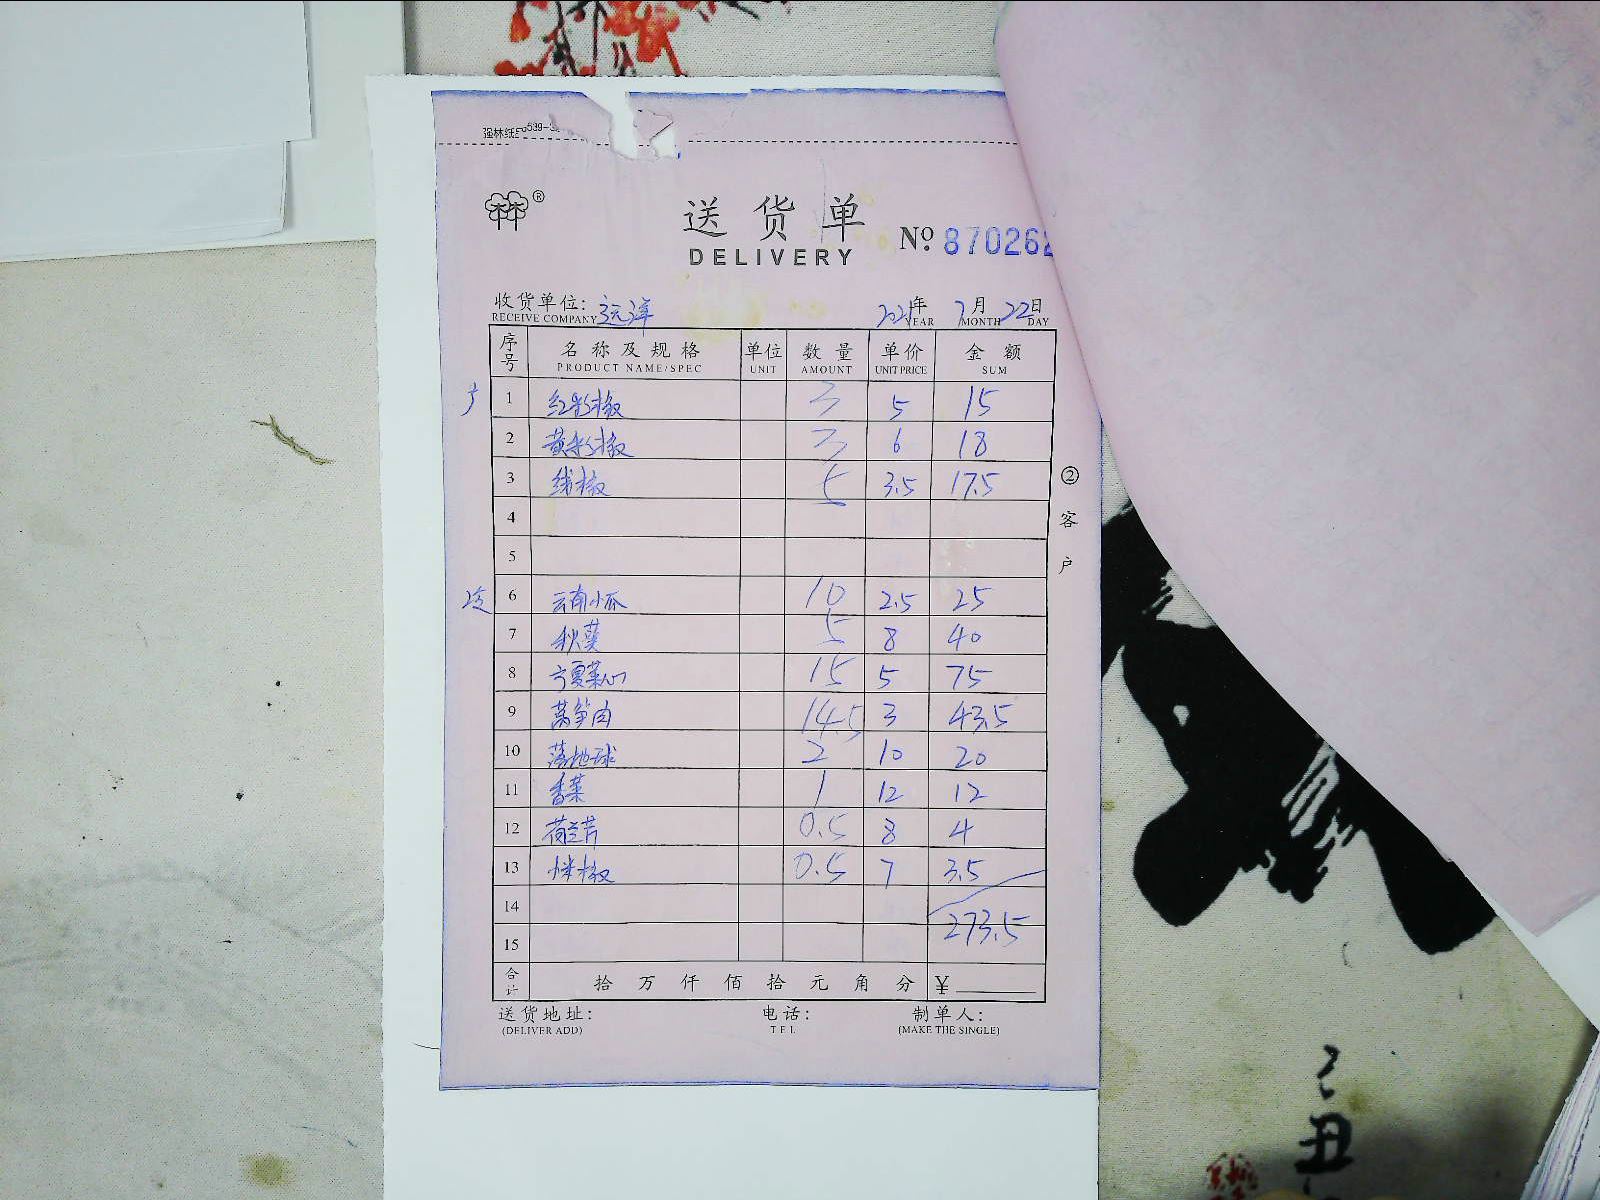 强林纸品539-3
®
送货单
DELIVERY
№ 870262
收货单位: 远洋 2021年 7月 22日
RECEIVE COMPANY YEAR MONTH DAY
序号 名称及规格 单位 数量 单价 金额
PRODUCT NAME/SPEC UNIT AMOUNT UNIT PRICE SUM
1 红彩椒 3 5 15
2 黄彩椒 3 6 18
3 线椒 5 3.5 17.5
4
5
6 云南小瓜 10 2.5 25
7 秋葵 5 8 40
8 宁夏菜心 15 5 75
9 莴笋肉 14.5 3 43.5
10 落地球 2 10 20
11 香菜 1 12 12
12 荷兰芹 0.5 8 4
13 米椒 0.5 7 3.5
14
273.5
15
合计 拾 万 仟 佰 拾 元 角 分 ¥
送货地址: 电话: 制单人:
(DELIVER ADD) TEL (MAKE THE SINGLE)
②客户
己丑